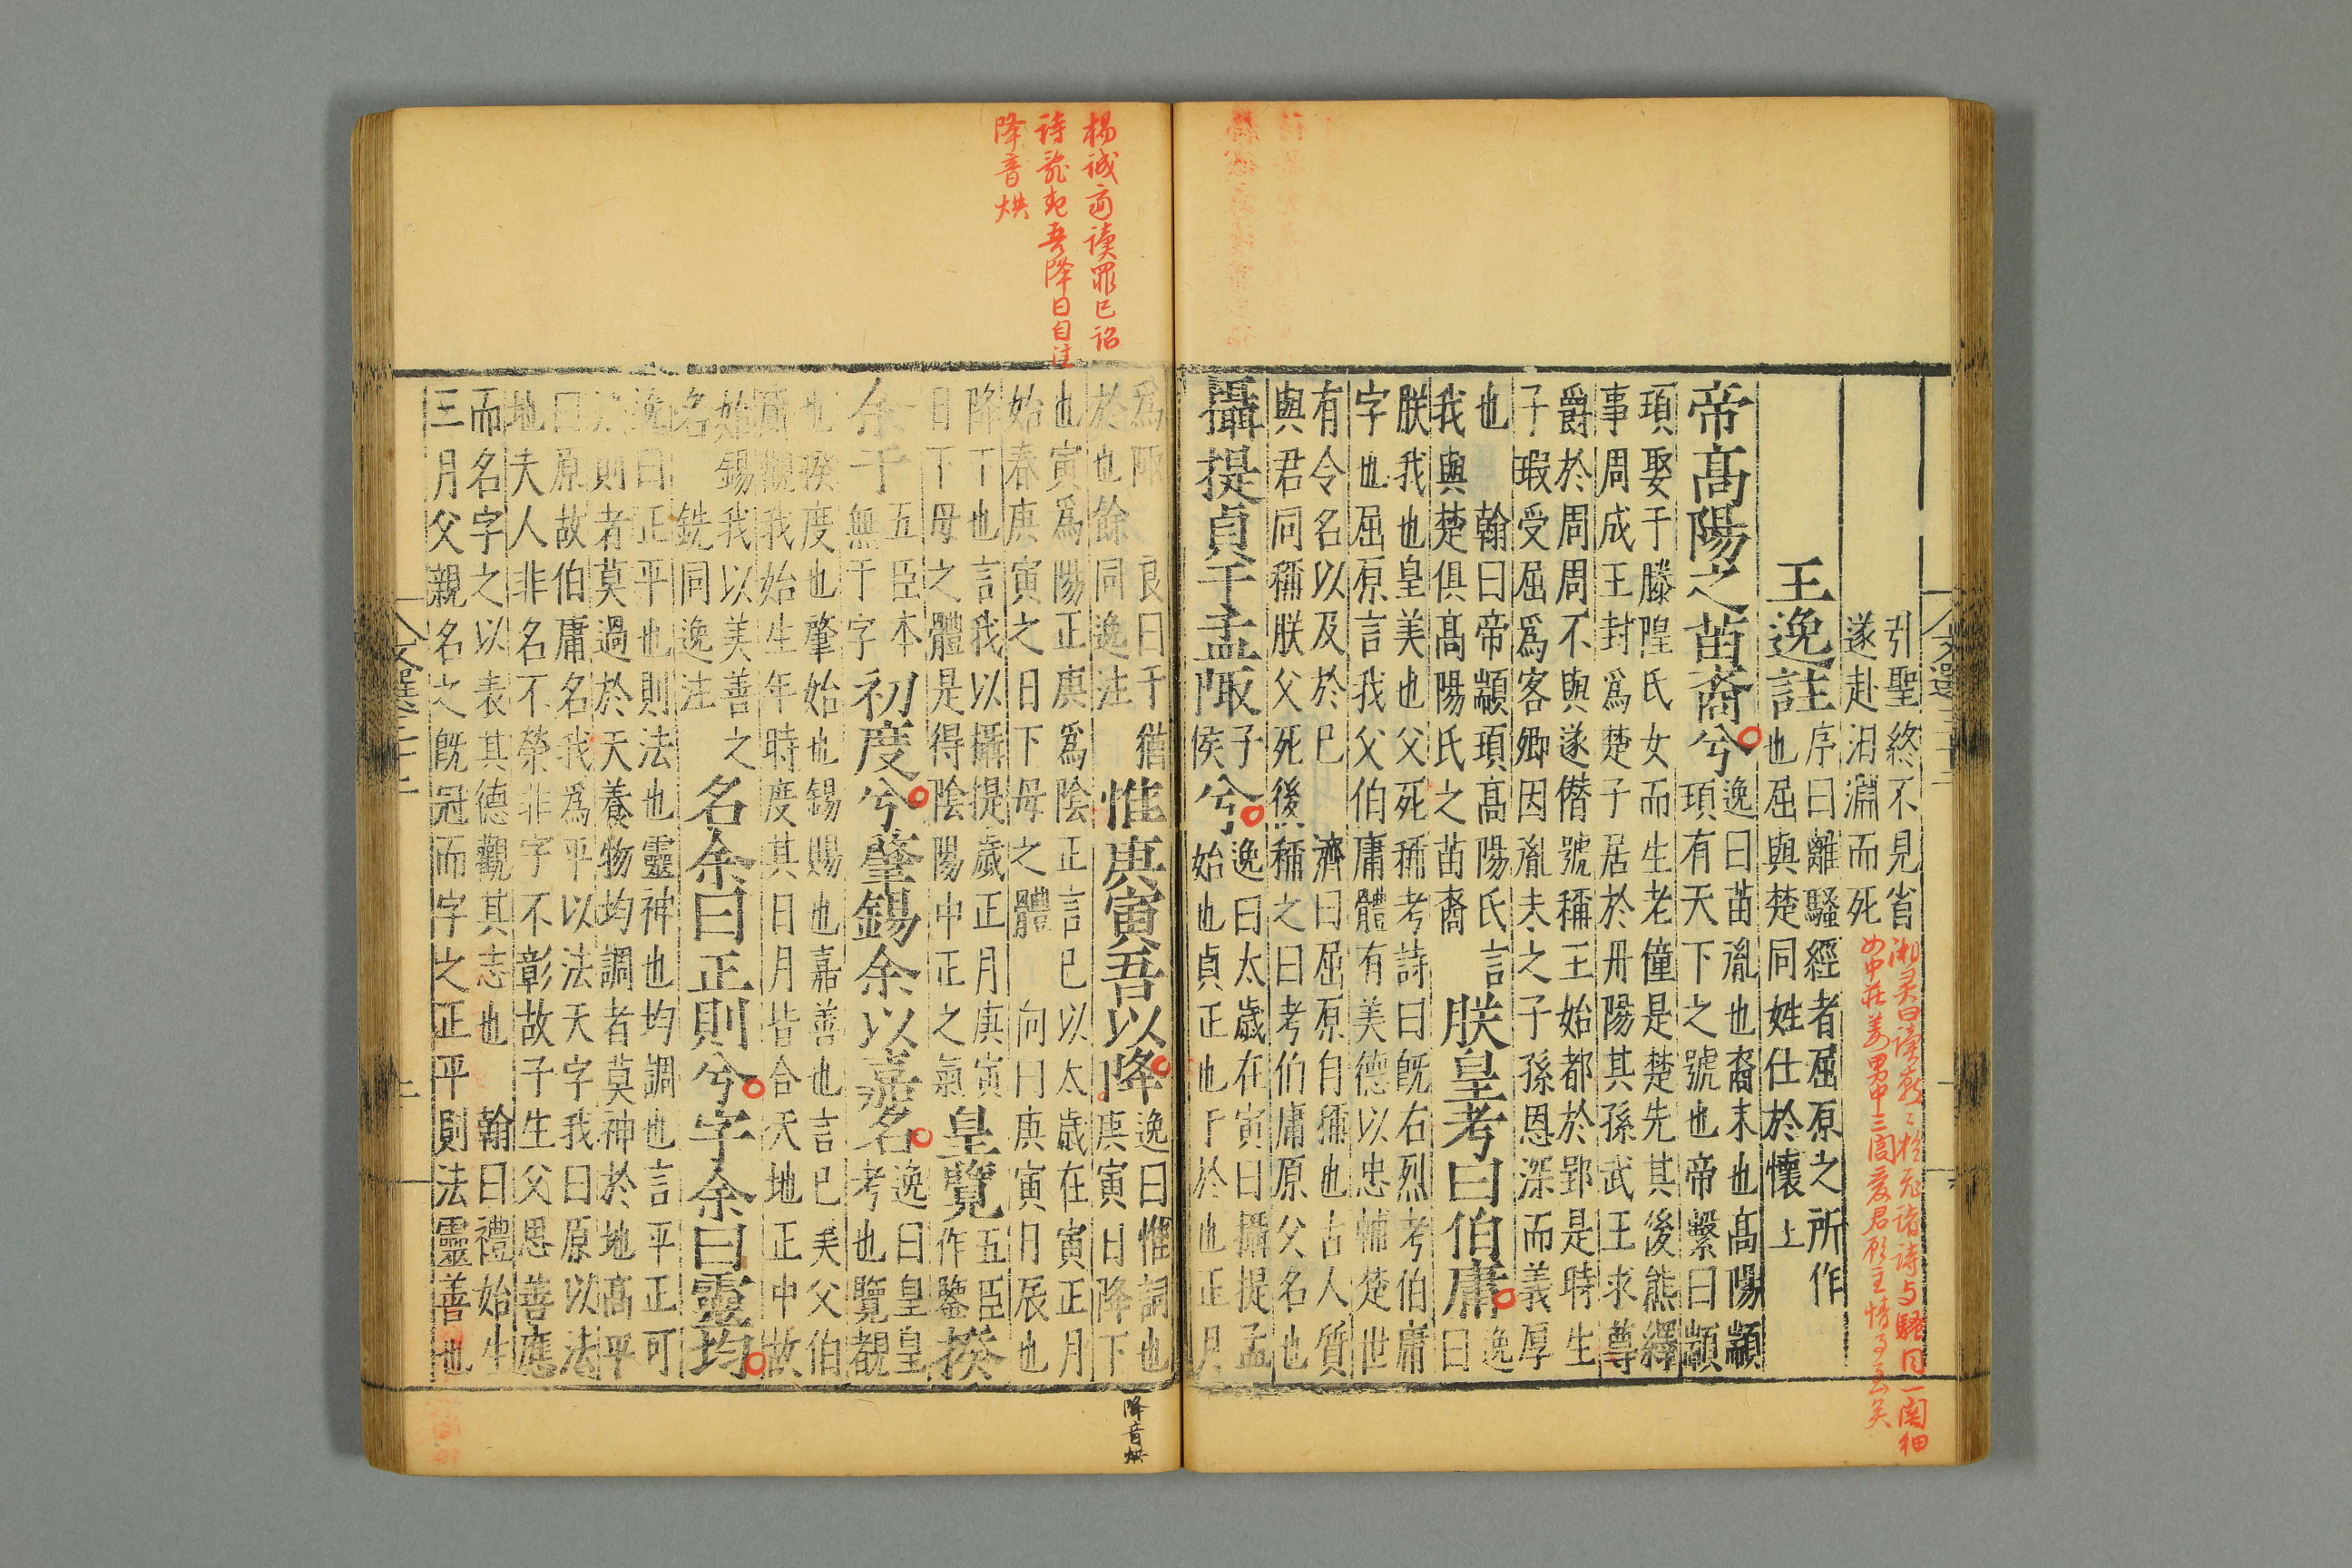 引聖終不見省
遂赴汨淵而死
王逸註
序曰離騷經者屈原之所作
也屈與楚同姓仕於懷上
帝高陽之苗裔兮
逸曰苗胤也裔末也高陽顓
頊有天下之號也帝繫曰顓
頊娶于滕隍氏女而生老僮是楚先其後熊繹
事周成王封爲楚子居於丹陽其孫武王求尊
爵於周周不與遂僭號稱王始都於郢是時生
子瑕受屈爲客卿因胤夫之子孫恩深而義厚
也 翰曰帝顓頊高陽氏言
我與楚俱高陽氏之苗裔
朕皇考曰伯庸
逸
曰
朕我也皇美也父死稱考詩曰旣右烈考伯庸
字也屈原言我父伯庸體有美德以忠輔楚世
有令名以及於巳 濟曰屈原自稱也古人質
與君同稱朕父死後稱之曰考伯庸原父名也
攝提貞于孟陬
子
侯
兮
逸曰太歲在寅曰攝提孟
始也貞正也于於也正月
爲陬 良曰于猶
於也餘同逸注
惟庚寅吾以降
逸曰惟詞也
庚寅日降下
也寅爲陽正庚爲陰正言巳以太歲在寅正月
始春庚寅之日下母之體 向曰庚寅日辰也
降下也言我以攝提歲正月庚寅
日下母之體是得陰陽中正之氣
皇覽
五臣
作鑒
揆
余于
五臣本
無于字
初度兮肇錫余以嘉名
逸曰皇皇
考也覽觀
也揆度也肇始也錫賜也嘉善也言巳美父伯
庸觀我始生年時度其日月皆合天地正中故
始錫我以美善之
名 銑同逸注
名余曰正則兮字余曰靈均
逸曰正平也則法也靈神也均調也言平正可
法則者莫過於天養物均調者莫神於地高平
曰原故伯庸名我爲平以法天字我曰原以法
地夫人非名不榮非字不彰故子生父思善應
而名字之以表其德觀其志也 翰曰禮始生
三月父親名之旣冠而字之正平則法靈善也
楊誠齋讀罪巳詔
詩
吾降日自注
降音烘
降音烘